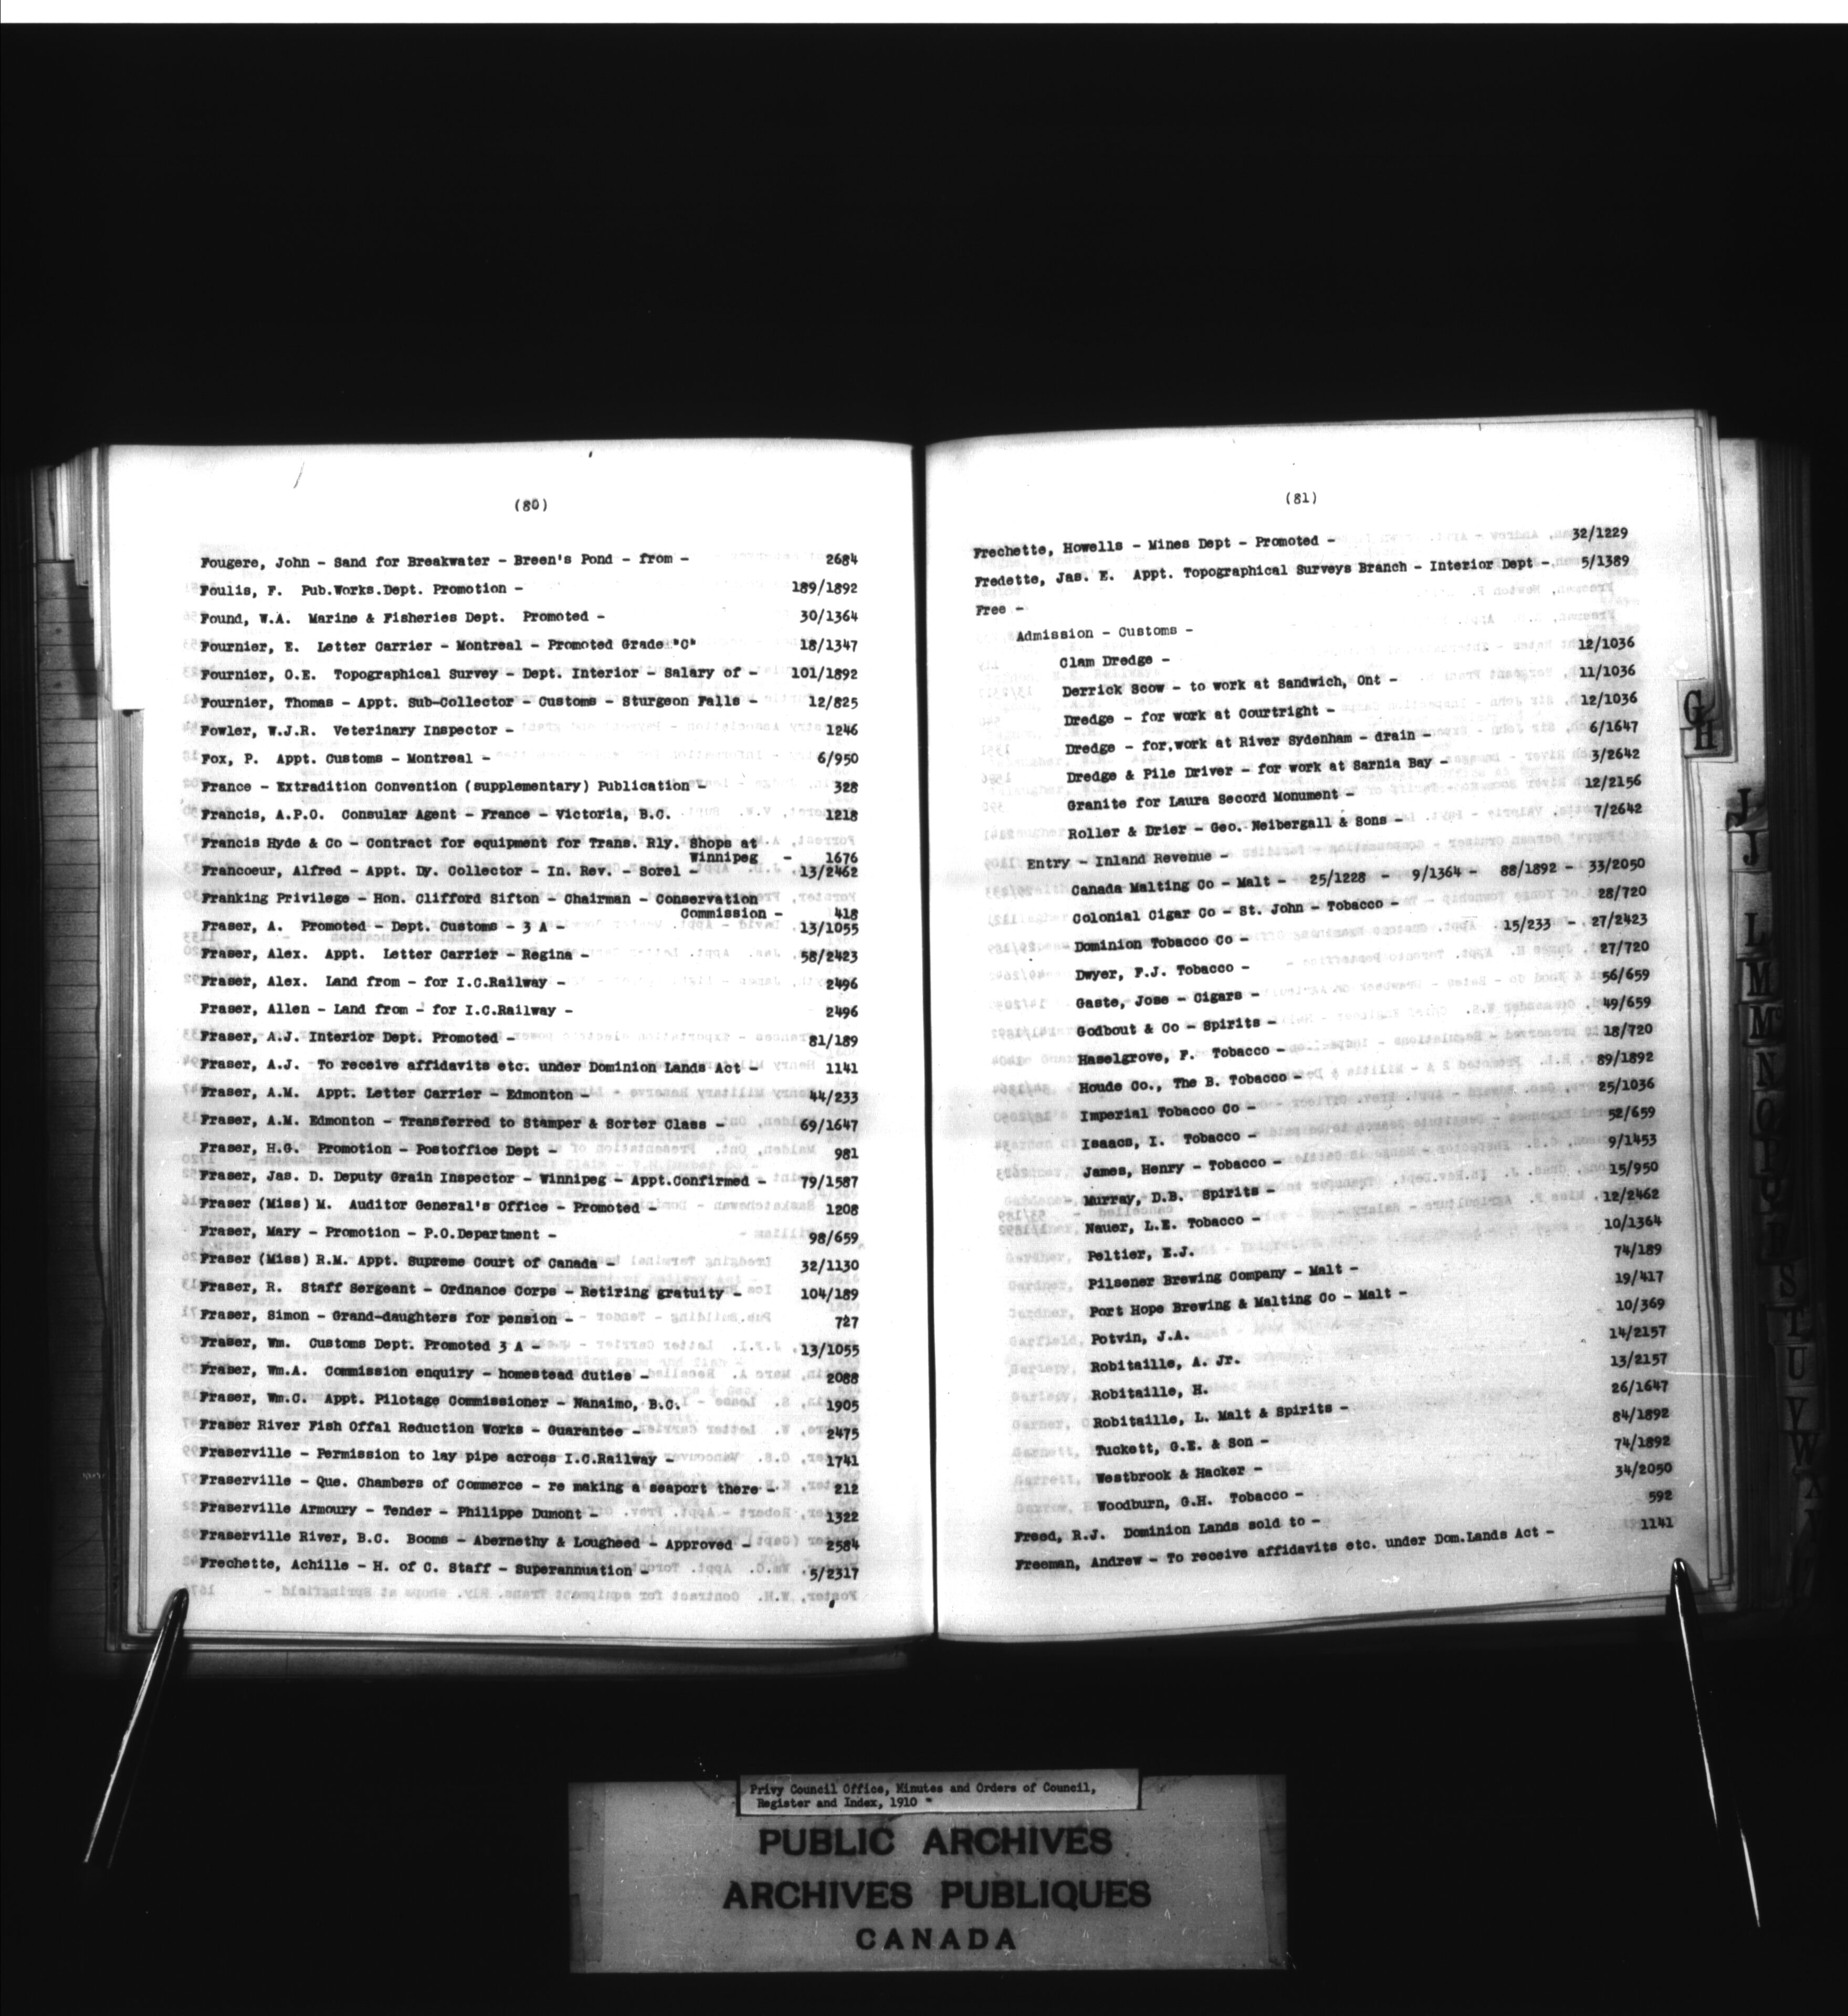 (80)
Fougere, John - Sand for Breakwater - Breen's Pond - from - 2684
Foulis, F. Pub.Works.Dept. Promotion - 189/1892
Found, W.A. Marine & Fisheries Dept. Promoted - 30/1364
Fournier, E. Letter Carrier - Montreal - Promoted Grade "C" 18/1347
Fournier, O.E. Topographical Survey - Dept. Interior - Salary of - 101/1892
Fournier, Thomas - Appt. Sub-Collector - Customs - Sturgeon Falls - 12/825
Fowler, W.J.R. Veterinary Inspector - 1246
Fox, P. Appt. Customs - Montreal - 6/950
France - Extradition Convention (supplementary) Publication - 328
Francis, A.P.O. Consular Agent - France - Victoria, B.C. 1218
Francis Hyde & Co - Contract for equipment for Trans. Rly. Shops at
Winnipeg - 1676
Francoeur, Alfred - Appt. Dy. Collector - In. Rev. - Sorel - 13/2462
Franking Privilege - Hon. Clifford Sifton - Chairman - Conservation
Commission - 418
Fraser, A. Promoted - Dept. Customs - 3 A - 13/1055
Fraser, Alex. Appt. Letter Carrier - Regina - 58/2423
Fraser, Alex. Land from - for I.C.Railway - 2496
Fraser, Allen - Land from - for I.C.Railway - 2496
Fraser, A.J. Interior Dept. Promoted - 81/189
Fraser, A.J. To receive affidavits etc. under Dominion Lands Act - 1141
Fraser, A.M. Appt. Letter Carrier - Edmonton - 44/233
Fraser, A.M. Edmonton - Transferred to Stamper & Sorter Class - 69/1647
Fraser, H.G. Promotion - Postoffice Dept - 981
Fraser, Jas. D. Deputy Grain Inspector - Winnipeg - Appt.Confirmed - 79/1587
Fraser (Miss) M. Auditor General's Office - Promoted - 1208
Fraser, Mary - Promotion - P.O.Department - 98/659
Fraser (Miss) R.M. Appt. Supreme Court of Canada - 32/1130
Fraser, R. Staff Sergeant - Ordnance Corps - Retiring gratuity - 104/189
Fraser, Simon - Grand-daughters for pension - 727
Fraser, Wm. Customs Dept. Promoted 3 A - 13/1055
Fraser, Wm.A. Commission enquiry - homestead duties - 2088
Fraser, Wm.C. Appt. Pilotage Commissioner - Nanaimo, B.C. 1905
Fraser River Fish Offal Reduction Works - Guarantee - 2475
Fraserville - Permission to lay pipe across I.C.Railway - 1741
Fraserville - Que. Chambers of Commerce - re making a seaport there - 212
Fraserville Armoury - Tender - Philippe Dumont - 1322
Fraserville River, B.C. Booms - Abernethy & Lougheed - Approved - 2584
Frechette, Achille - H. of C. Staff - Superannuation - 5/2317
(81)
Frechette, Howells - Mines Dept - Promoted - 32/1229
Fredette, Jas. E. Appt. Topographical Surveys Branch - Interior Dept - 5/1389
Free -
Admission - Customs -
Clam Dredge - 12/1036
Derrick Scow - to work at Sandwich, Ont - 11/1036
Dredge - for work at Courtright - 12/1036
Dredge - for work at River Sydenham - drain - 6/1647
Dredge & Pile Driver - for work at Sarnia Bay - 3/2642
Granite for Laura Secord Monument - 12/2156
Roller & Drier - Geo. Neibergall & Sons - 7/2642
Entry - Inland Revenue -
Canada Malting Co - Malt - 25/1228 - 9/1364 - 88/1892 - 33/2050
Colonial Cigar Co - St. John - Tobacco - 28/720
Dominion Tobacco Co - 15/233 - 27/2423
Dwyer, F.J. Tobacco - 27/720
Gaste, Jose - Cigars - 56/659
Godbout & Co - Spirits - 49/659
Haselgrove, F. Tobacco - 18/720
Houde Co., The B. Tobacco - 89/1892
Imperial Tobacco Co - 25/1036
Isaacs, I. Tobacco - 52/659
James, Henry - Tobacco - 9/1453
Murray, D.B. Spirits - 15/950
Nauer, L.E. Tobacco - 12/2462
Peltier, E.J. 10/1364
Pilsener Brewing Company - Malt - 74/189
Port Hope Brewing & Malting Co - Malt - 19/417
Potvin, J.A. 10/369
Robitaille, A. Jr. 14/2157
Robitaille, H. 13/2157
Robitaille, L. Malt & Spirits - 26/1647
Tuckett, G.E. & Son - 84/1892
Westbrook & Hacker - 74/1892
Woodburn, G.H. Tobacco - 34/2050
Freed, R.J. Dominion Lands sold to - 592
Freeman, Andrew - To receive affidavits etc. under Dom.Lands Act - 1141
G
H
J
J
L
M
M
N
O
P
Y
S
T
U
V
W
X
Privy Council Office, Minutes and Orders of Council,
Register and Index, 1910 -
PUBLIC ARCHIVES
ARCHIVES PUBLIQUES
CANADA